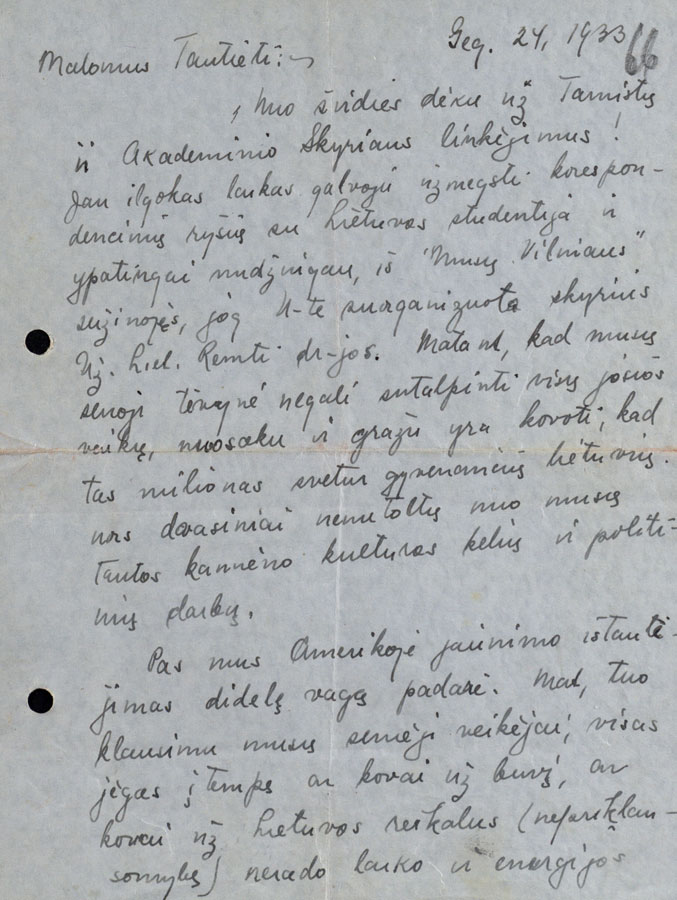 Geg. 24, 1933
66
Malonus Tautieti:
Nuo širdies dėkui už Tamistų
ir Akademinio Skyriaus linkėjimus!
Jau ilgokas laikas galvoju užmegsti korespon-
dencinių ryšių su Lietuvos studentija ir
ypatingai nudžiugau, iš "Musų Vilniaus"
sužinojęs, jog U-te suorganizuota skyrius
Už. Liet. Remti dr-jos. Matant, kad musų
senoji tėvynė negali sutalpinti visų josios
vaikų, nuosaku ir gražu yra kovoti, kad
tas milionas svetur gyvenančių lietuvių
nors dvasiniai nenutoltų nuo musų
Tautos kamieno kulturos kelių ir politi-
nių darbų.
Pas mus Amerikoje jaunimo ištautė-
jimas didelę vagą padarė. Mat, tuo
klausimu musų senieji veikėjai, visas
jėgas įtempę ar kovai už buvį, ar
kovai už Lietuvos reikalus (nepriklau-
somybę) nerado laiko ir energijos